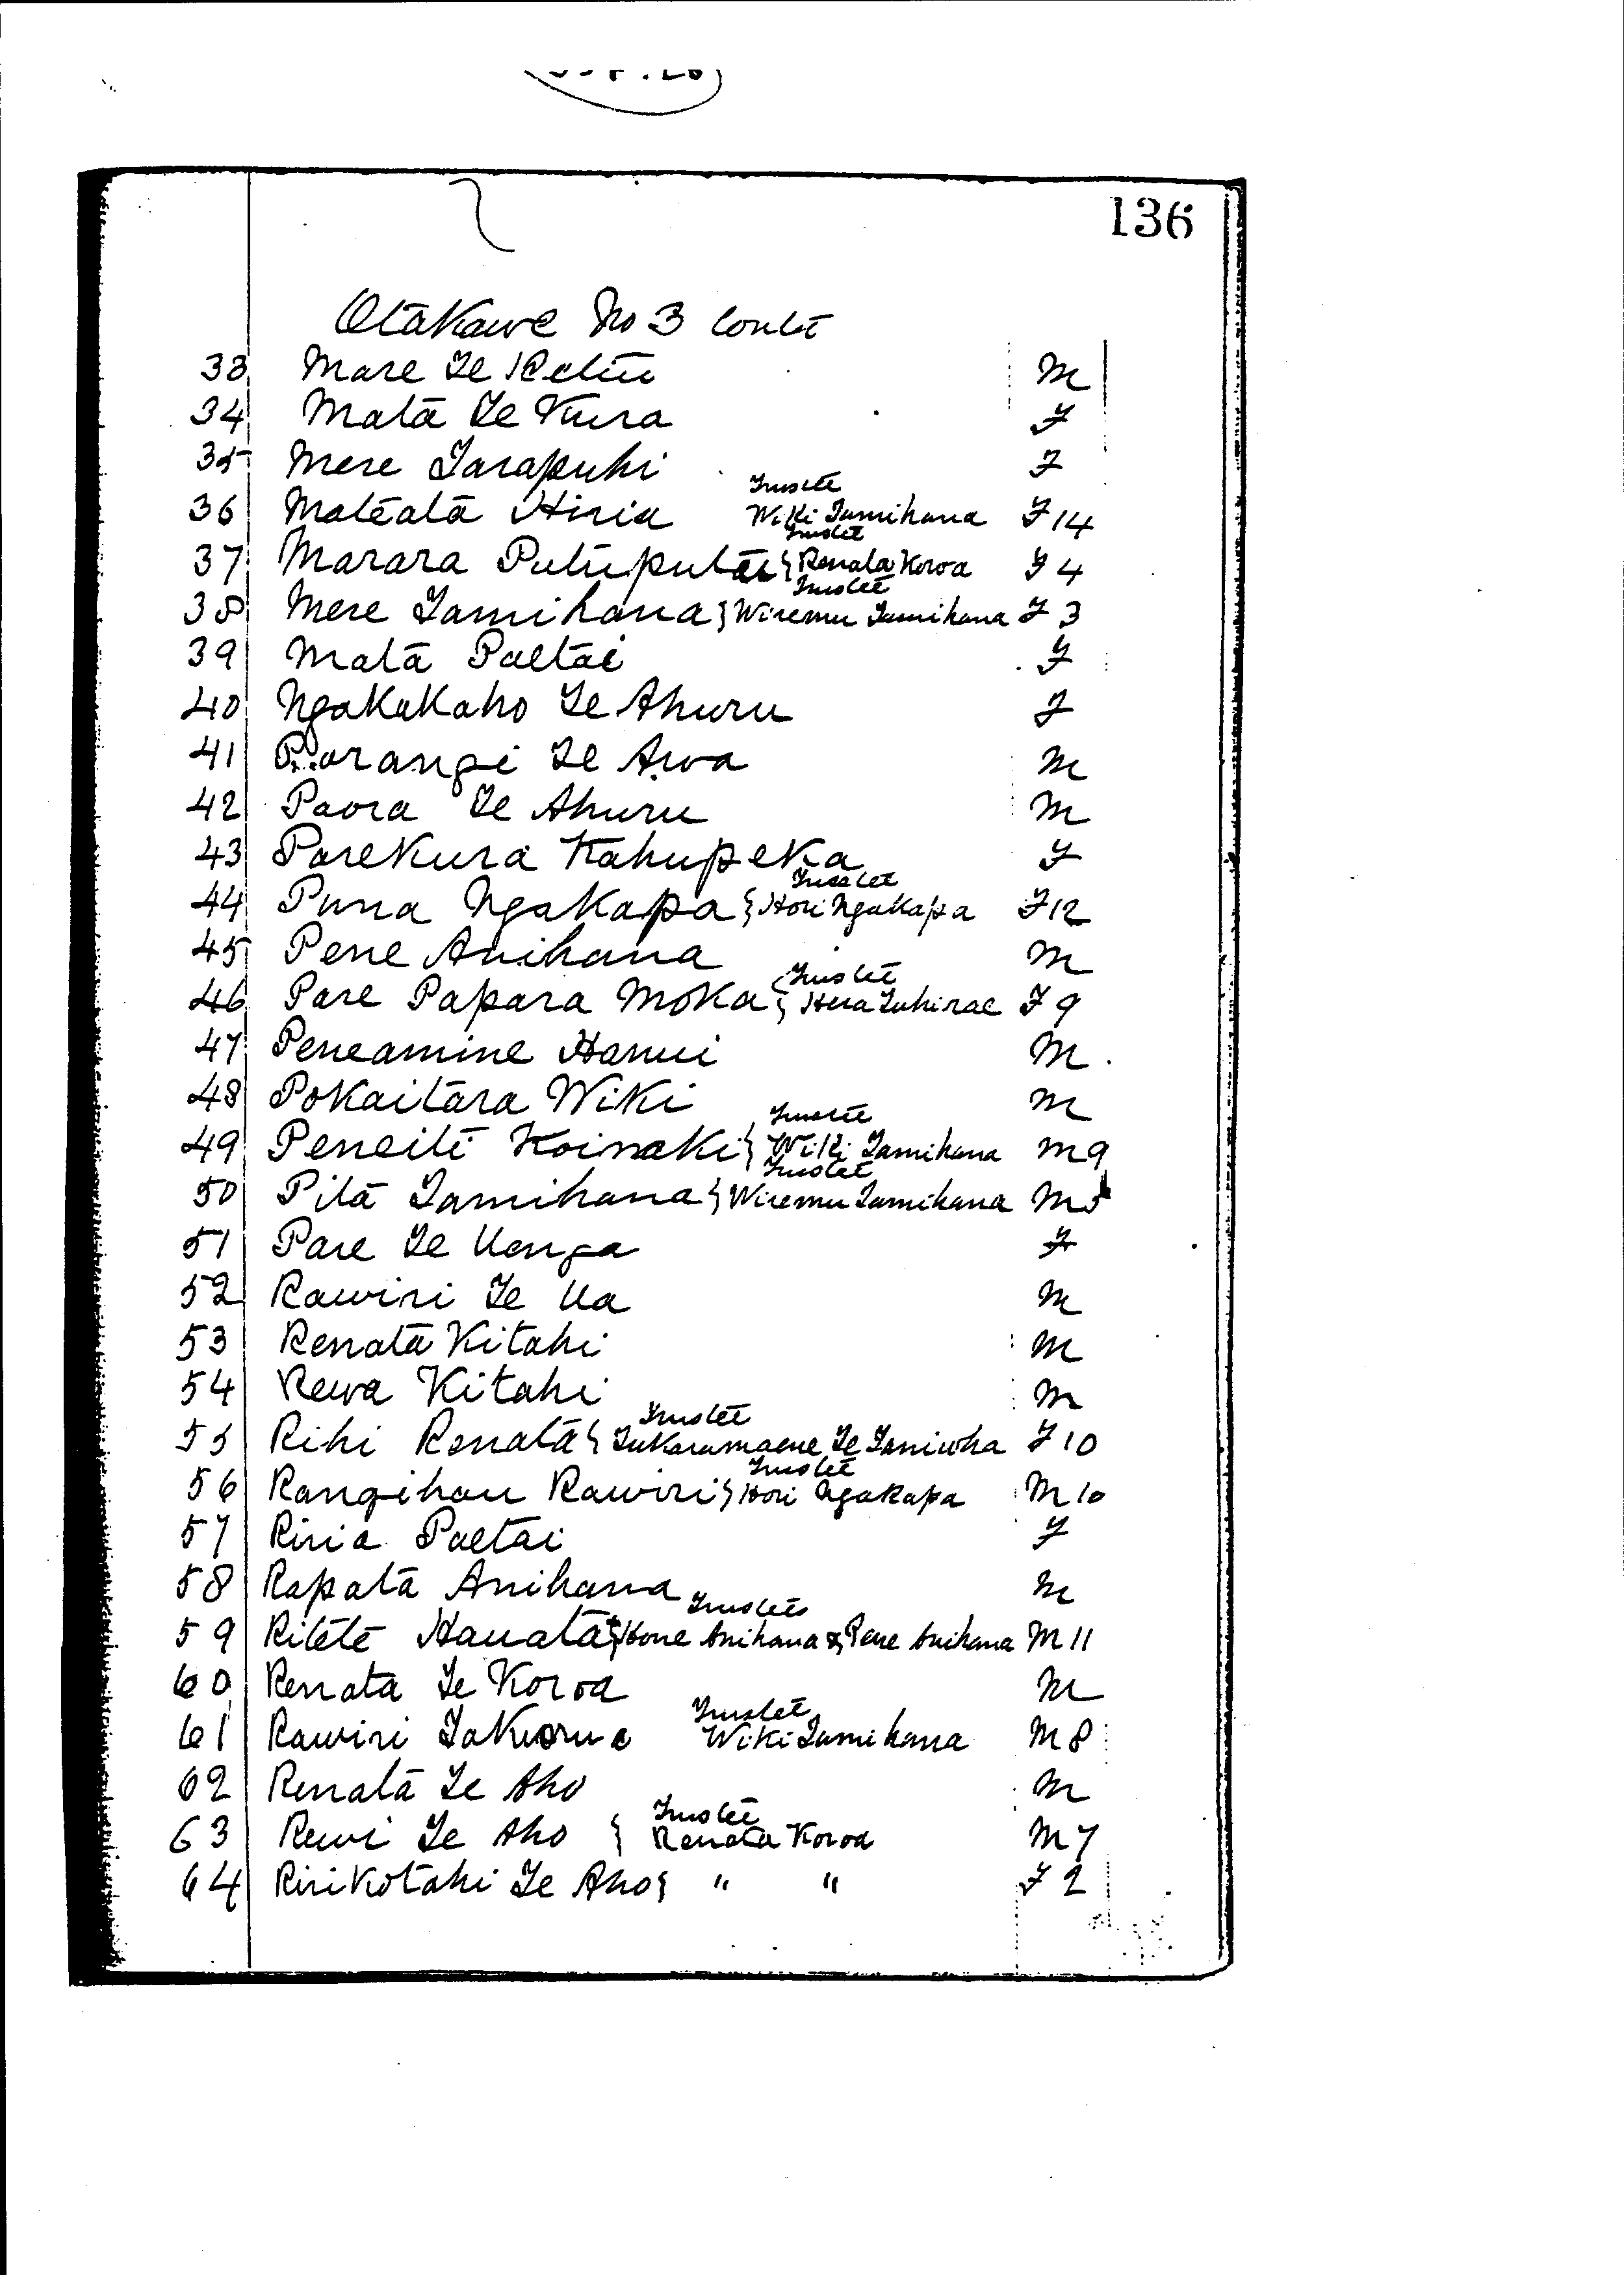 136
Otakawe No 3 Contd
33 Mare Te Retiu M
34 Mata Te Kura F
35 Mere Tarapuhi F
Trustee
36 Mateata Hiria Wiki Tamihana F 14
Trustee
37 Marara Putuputu { Renata Koroa F 4
Trustee
38 Mere Tamihana } Wiremu Tamihana F 3
39 Mata Paetai F
40 Ngakakaho Te Ahuru F
41 Porangi Te Awa M
42 Paora Te Ahuru M
43 Parekura Kahupeka F
Trustee
44 Puna Ngakapa { Hori Ngakapa F 12
45 Pene Anihana M
Trustee
46 Pare Papara Moka { Hera Tuhirae F 9
47 Peneamine Hanui M
48 Pokaitara Wiki M
Trustee
49 Peneiti Koinaki } Wiki Tamihana M 9
Trustee
50 Pita Tamihana } Wiremu Tamihana M 5
51 Pare Te Uenga F
52 Rawiri Te Ua M
53 Renata Kitahi M
54 Rewa Kitahi M
Trustee
55 Rihi Renata { Te Taniwha F 10
Trustee
56 Rangihau Rawiri } Hori Ngakapa M 10
57 Riria Paetai F
58 Rapata Anihana M
Trustees
59 Ritete Hauata { Hone Anihana & Pene Anihana M 11
60 Renata Te Koroa M
Trustee
61 Rawiri Takurua Wiki Tamihana M 8
62 Renata Te Aho M
Trustee
63 Rewi Te Aho { Renata Koroa M 7
64 Ririkotahi Te Aho { " " F 2